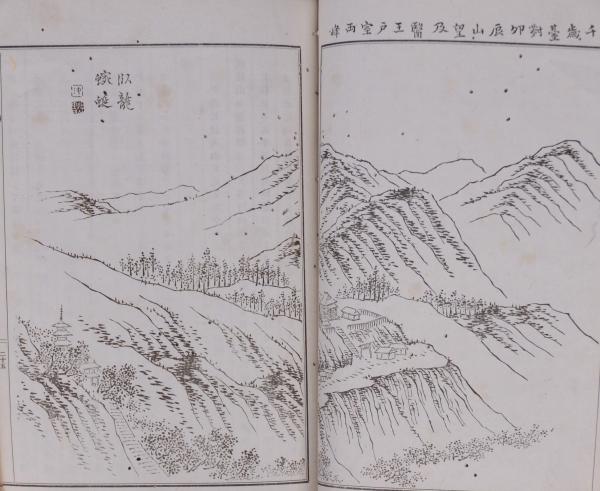 千歳臺對卯辰山望及醫王戸室両峰
臥龍
蜿蜒
二十五